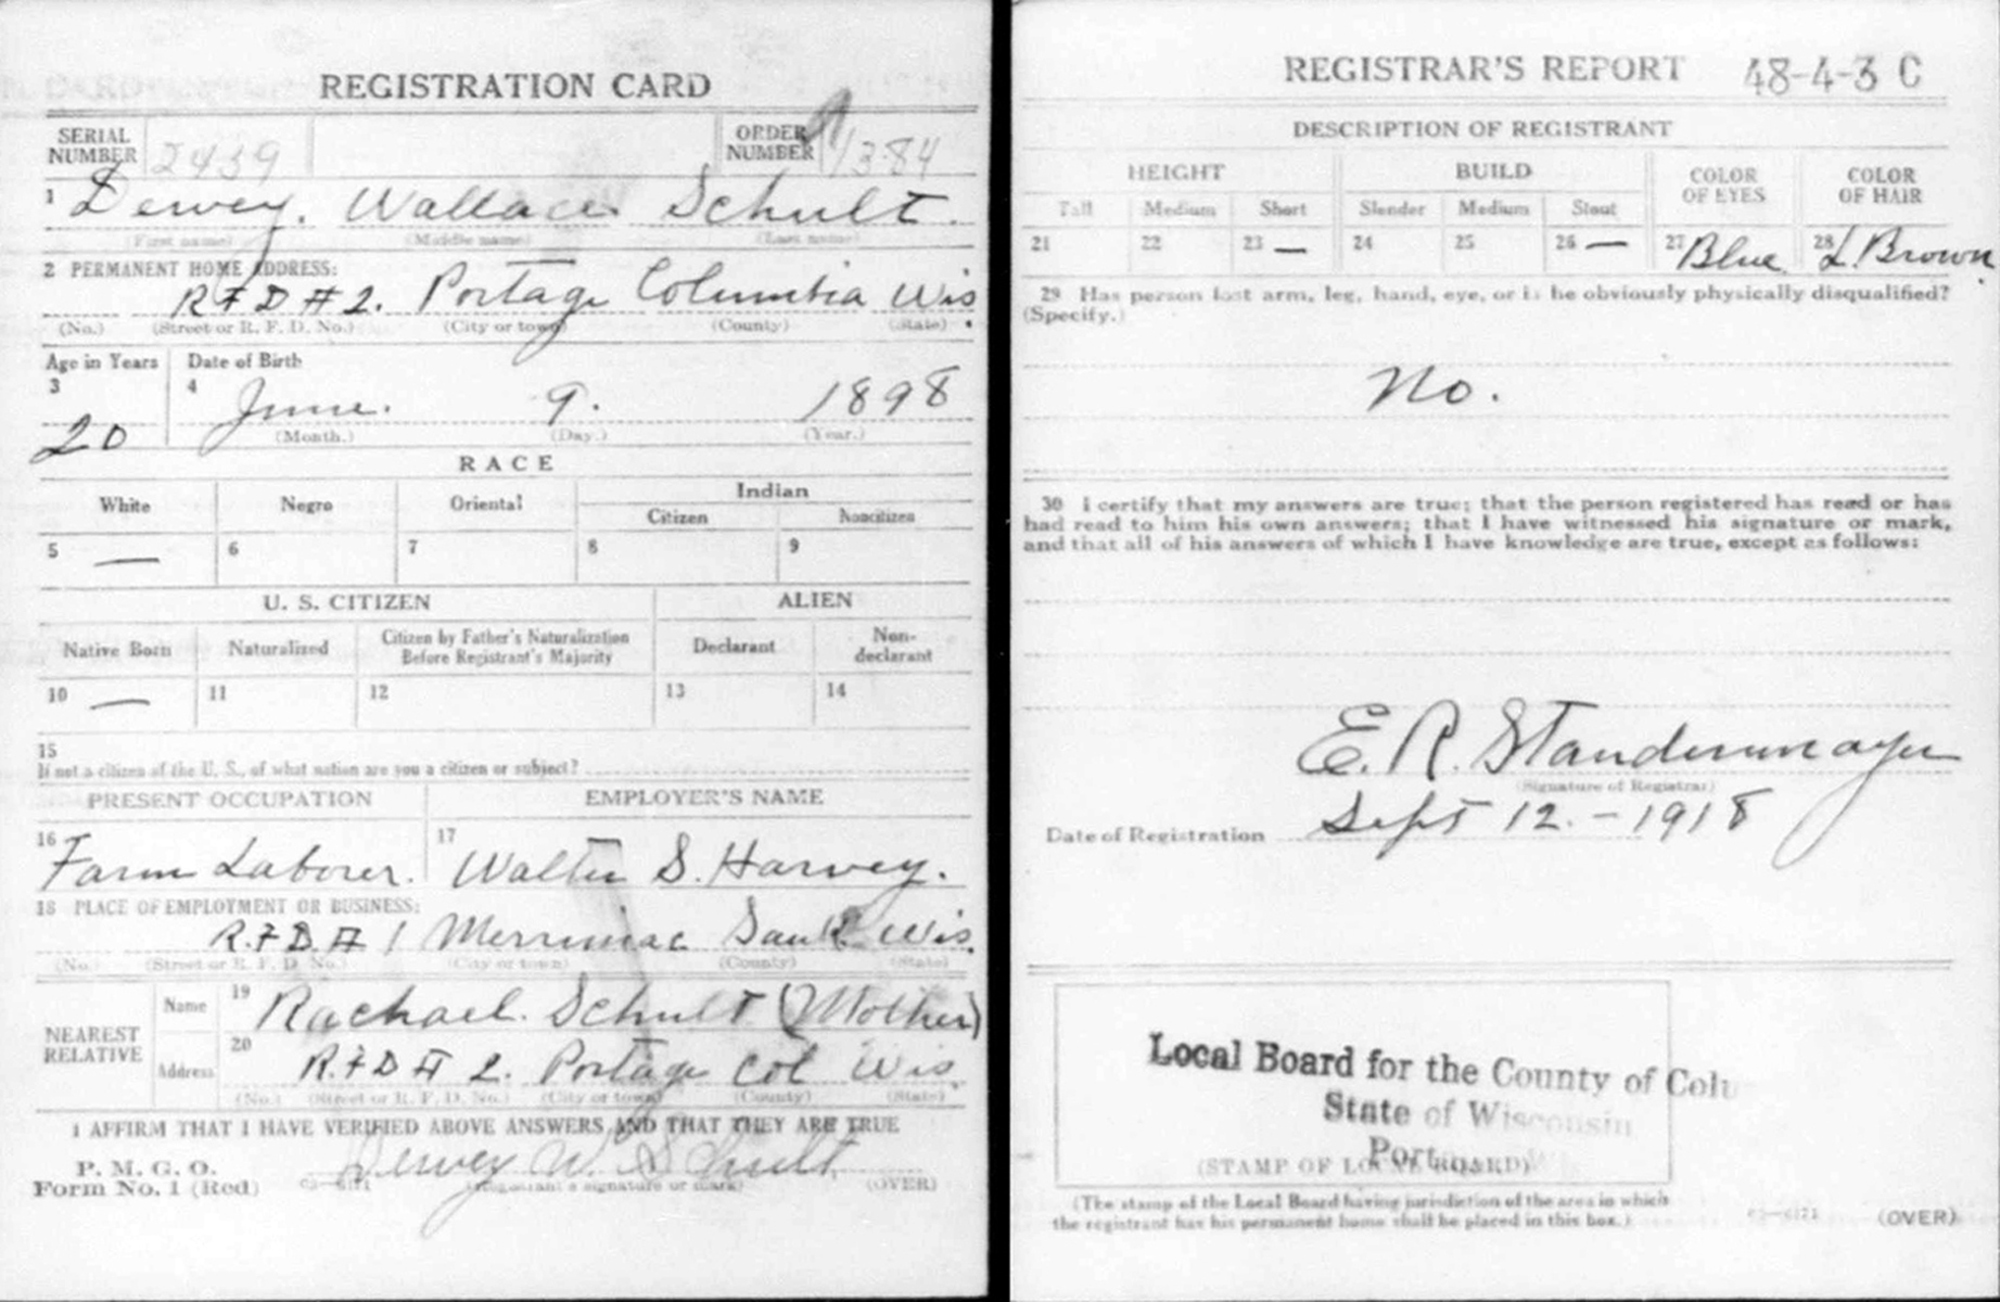 REGISTRATION CARD
SERIAL NUMBER 2439 ORDER NUMBER 1384
1 Dewey. Wallace Schult.
(First name) (Middle name) (Last name)
2 PERMANENT HOME ADDRESS:
R F D # 2. Portage Columbia Wis
(No.) (Street or R. F. D. No.) (City or town) (County) (State)
Age in Years Date of Birth
3 4
20 June. 9. 1898
(Month.) (Day.) (Year.)
RACE
White Negro Oriental Indian
Citizen Noncitizen
5 — 6 7 8 9
U. S. CITIZEN ALIEN
Native Born Naturalized Citizen by Father's Naturalization Before Registrant's Majority Declarant Non-declarant
10 — 11 12 13 14
15
If not a citizen of the U. S., of what nation are you a citizen or subject?
PRESENT OCCUPATION EMPLOYER'S NAME
16 Farm Laborer. 17 Walter S. Harvey.
18 PLACE OF EMPLOYMENT OR BUSINESS:
R.F.D. # 1 Merrimac Sauk Wis.
(No.) (Street or R. F. D. No.) (City or town) (County) (State)
NEAREST RELATIVE
Name 19 Rachael. Schult (Mother)
Address 20 R.F.D # 2. Portage Col Wis.
(No.) (Street or R. F. D. No.) (City or town) (County) (State)
I AFFIRM THAT I HAVE VERIFIED ABOVE ANSWERS AND THAT THEY ARE TRUE
P. M. G. O.
Form No. 1 (Red) Dewey W. Schult
(Registrant's signature or mark) (OVER)
REGISTRAR'S REPORT 48-4-3 C
DESCRIPTION OF REGISTRANT
HEIGHT BUILD COLOR OF EYES COLOR OF HAIR
Tall Medium Short Slender Medium Stout
21 22 23 — 24 25 26 — 27 Blue 28 L. Brown.
29 Has person lost arm, leg, hand, eye, or is he obviously physically disqualified?
(Specify.)
No.
30 I certify that my answers are true; that the person registered has read or has
had read to him his own answers; that I have witnessed his signature or mark,
and that all of his answers of which I have knowledge are true, except as follows:
E. R. Standenmayer
(Signature of Registrar)
Date of Registration Sept 12. - 1918
Local Board for the County of Colu
State of Wisconsin
Port
(STAMP OF LOCAL BOARD)
(The stamp of the Local Board having jurisdiction of the area in which
the registrant has his permanent home shall be placed in this box.)
(OVER)